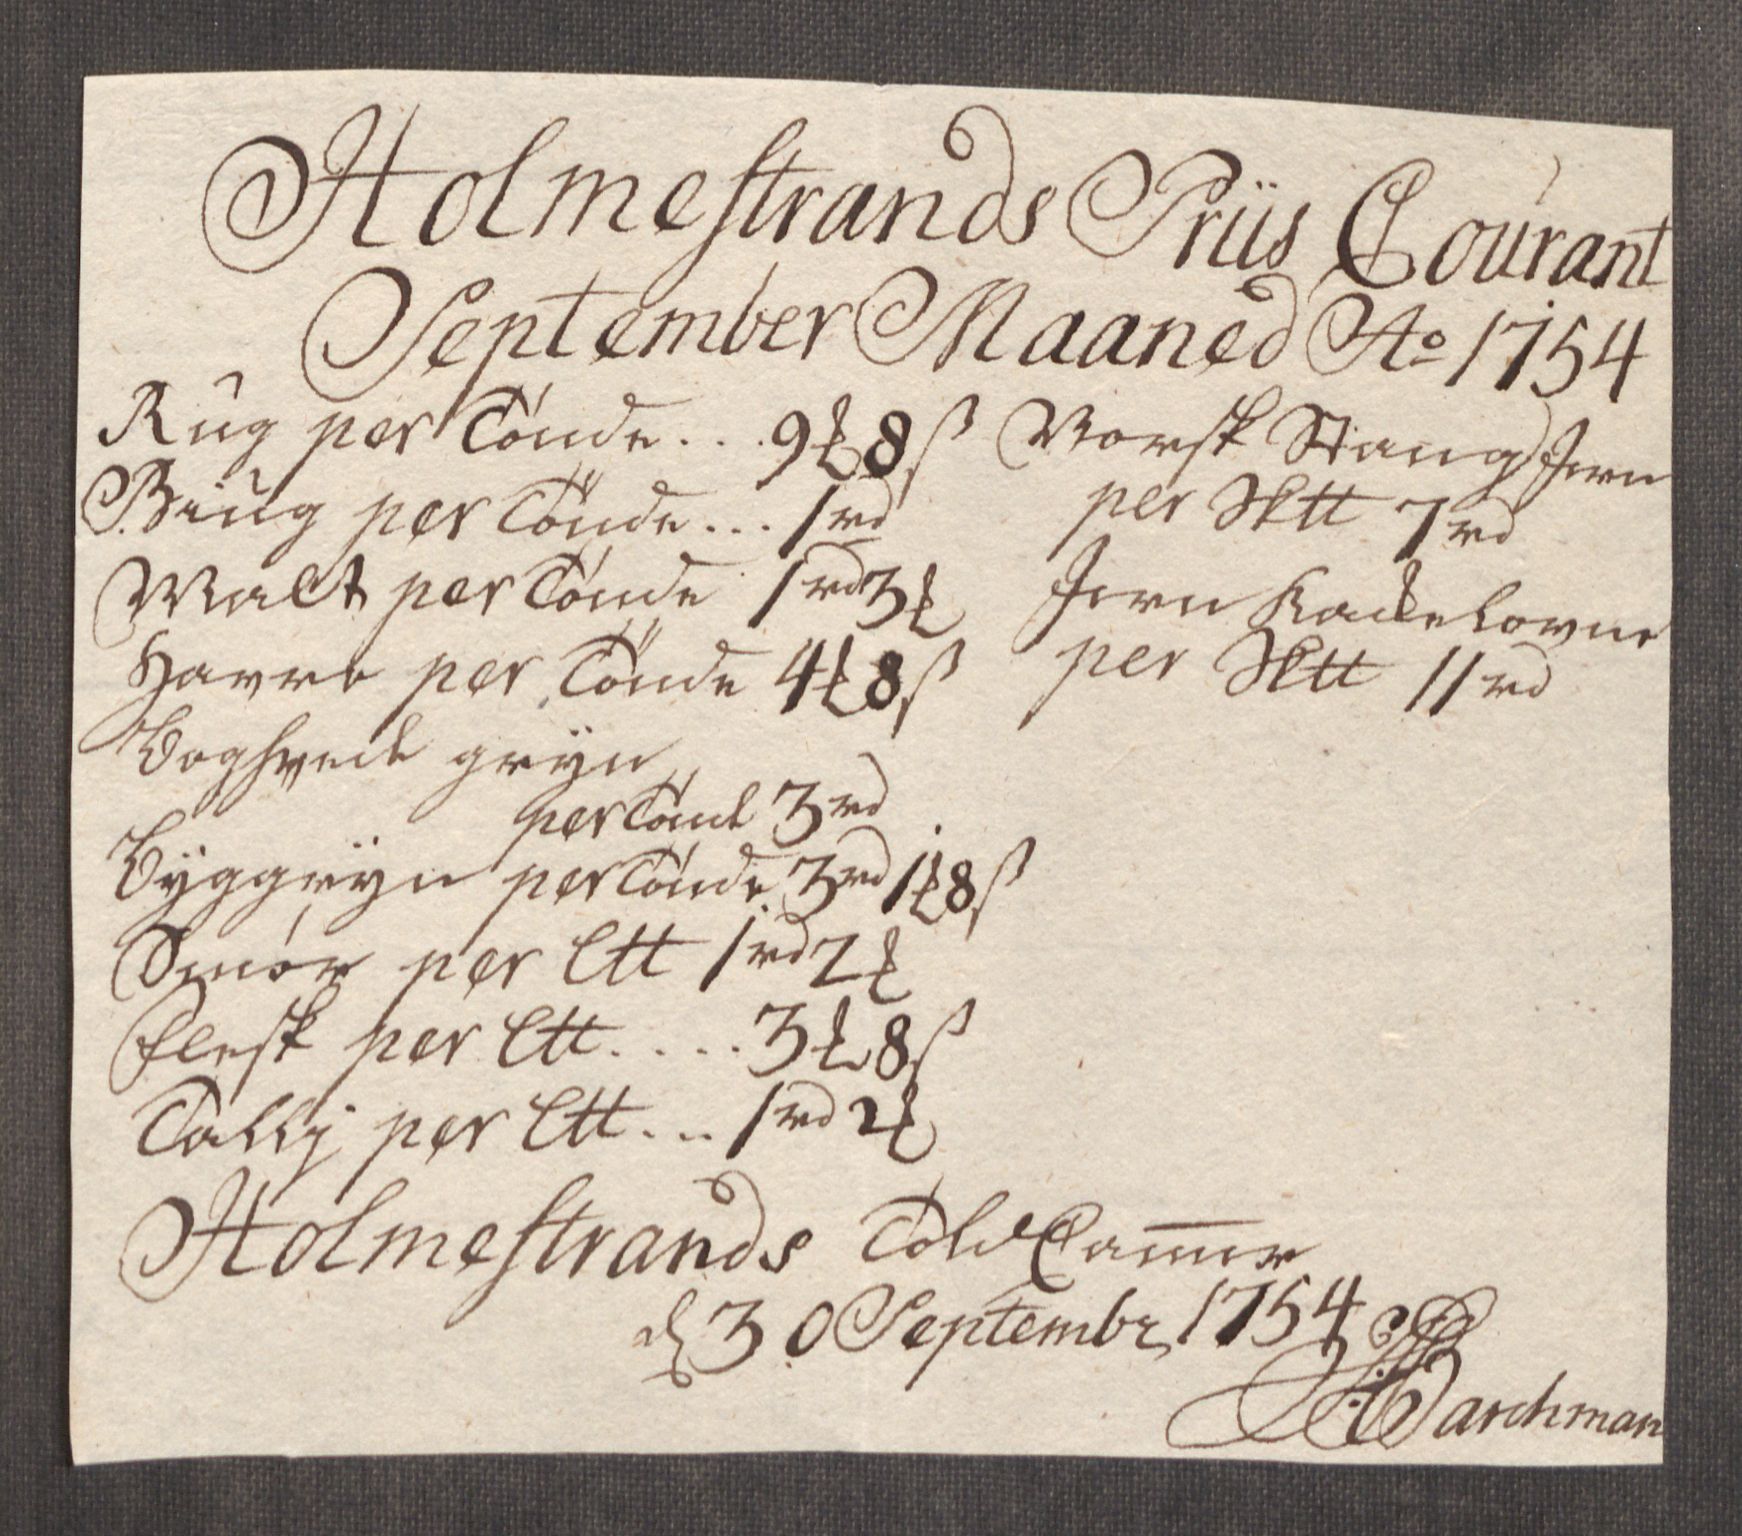 Holmestrands Priis Courant
September Maaned Ao 1754
Rug per Tónde... 9 ₰ 8 ß
Biug per Tönde... 1 rd
Malt per Tónde 1 rd 3 ₰
Havre per Tönde 4 ₰ 8 ß
Boghvede gryn
per Tónde 3 rd
Byggryn per Tónde 3 rd 1 ₰ 8 ß
Smór per Ltt 1 rd 2 ₰
Flesk per Ltt..... 3 ₰ 8 ß
Tallj per Ltt... 1 rd 2 ₰
Norsk Stang Jern
per Sktt 7 rd
Jern Kackelovne
per Sktt 11 rd
Holmestrands Told Camer
d 30 Septembr 1754